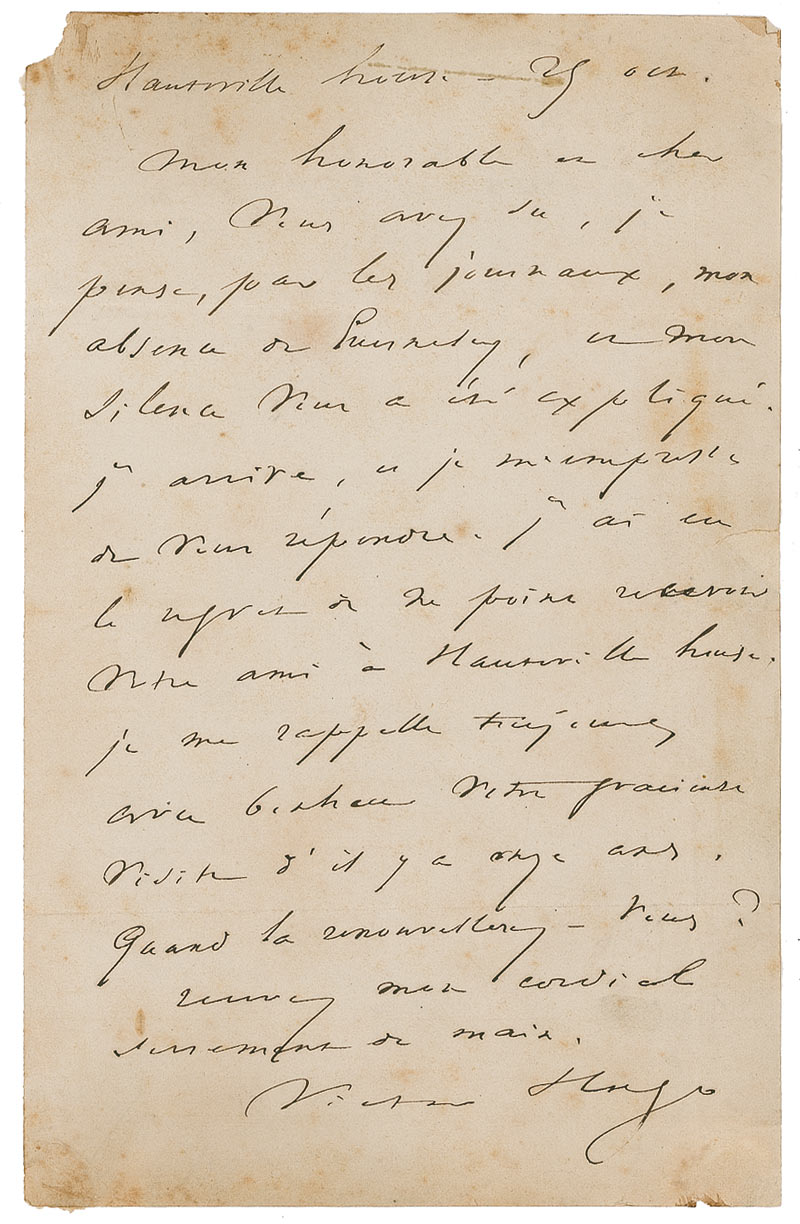 Hauteville house – 25 oct.
Mon honorable et cher
ami, Vous avez su, je
pense, par les journaux, mon
absence de Guernesey, et mon
silence vous a été expliqué.
j'arrive, et je m'empresse
de vous répondre. j'ai eu
le regret de ne point recevoir
votre ami à Hauteville house.
je me rappelle toujours
avec bonheur votre gracieuse
visite d'il y a onze ans.
Quand la renouvellerez-vous?
recevez mon cordial
serrement de main.
Victor Hugo